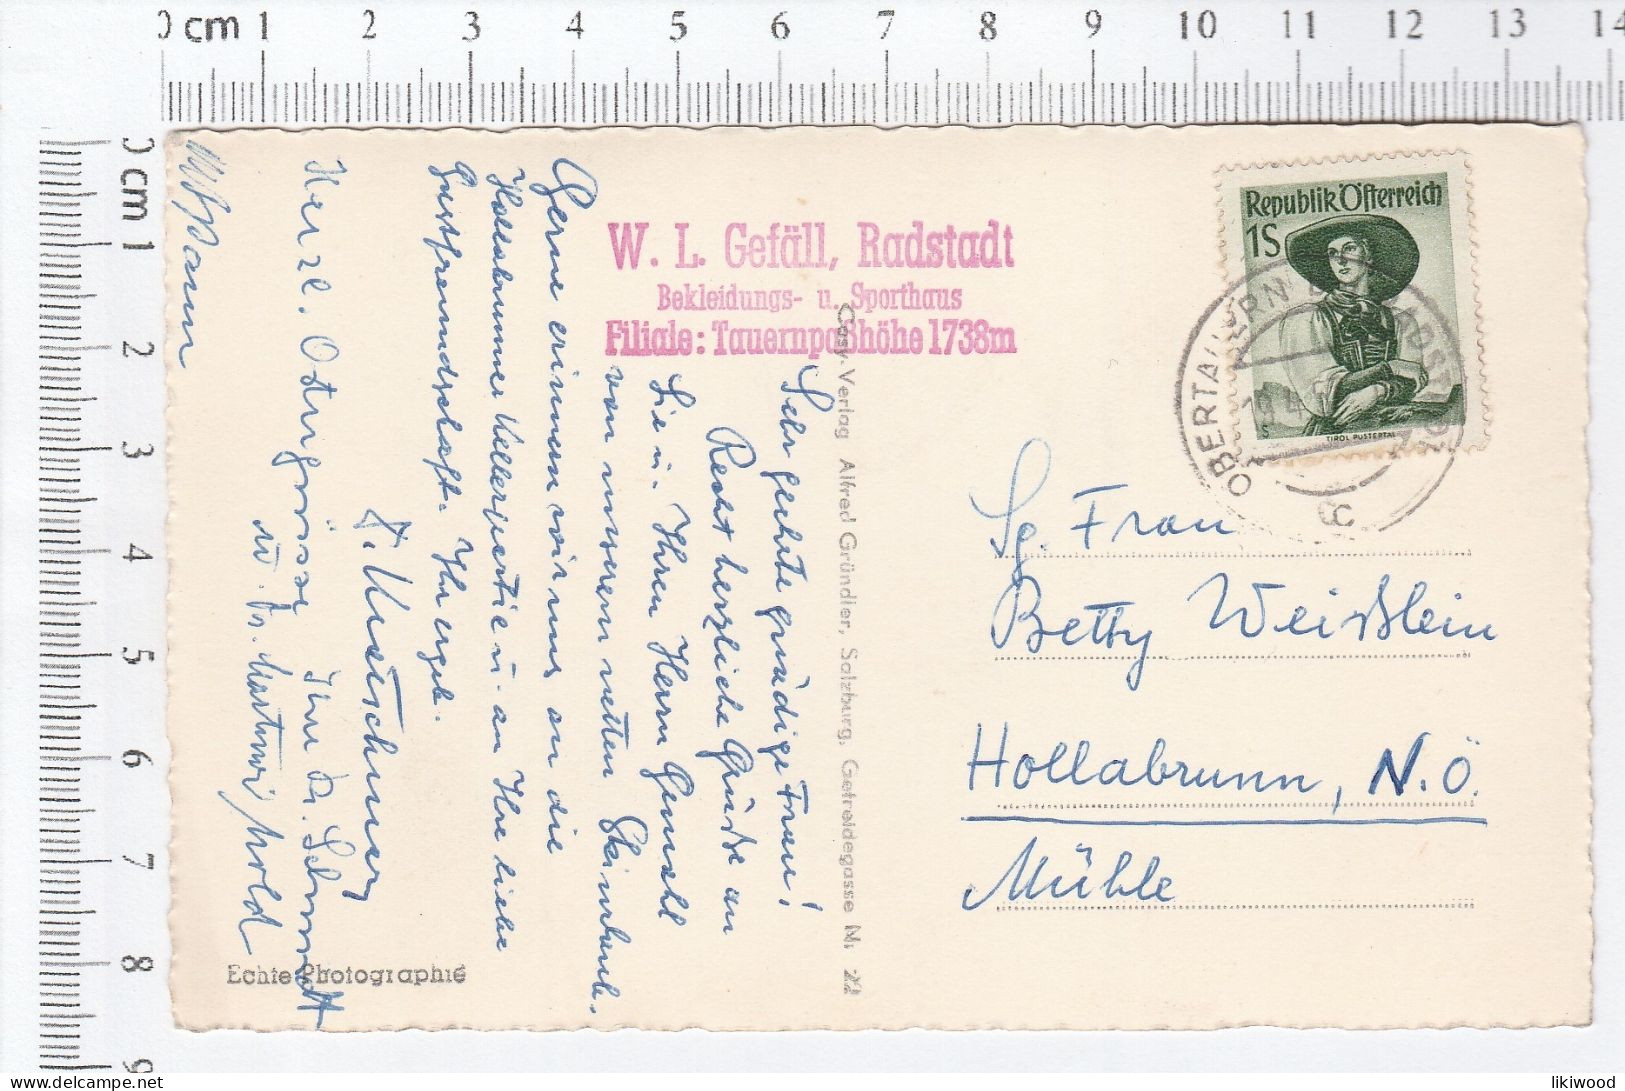 0 cm 1 2 3 4 5 6 7 8 9 10 11 12 13 14
0 cm 1 2 3 4 5 6 7 8 9
Republik Österreich
1S
TIROL PUSTERTAL
OBERTAUERN
W. L. Gefäll, Radstadt
Bekleidungs- u. Sporthaus
Filiale: Tauernpaßhöhe 1738m
Sehr geehrte gnädige Frau!
Recht herzliche Grüße an
Sie u. Ihren Herrn Gemahl
von unserem netten
Gerne erinnern wir uns an die
Hollabrunner Kellerpartie u. an Ihre liebe
Gastfreundschaft. Ihr ergeb.
Herzl. Ostergrüsse Ihr Dr.
Cosy-Verlag Alfred Gründler, Salzburg, Getreidegasse Nr. 22
Echte Photographie
Sg. Frau
Betty Weißlein
Hollabrunn, N.Ö.
Mühle
likiwood